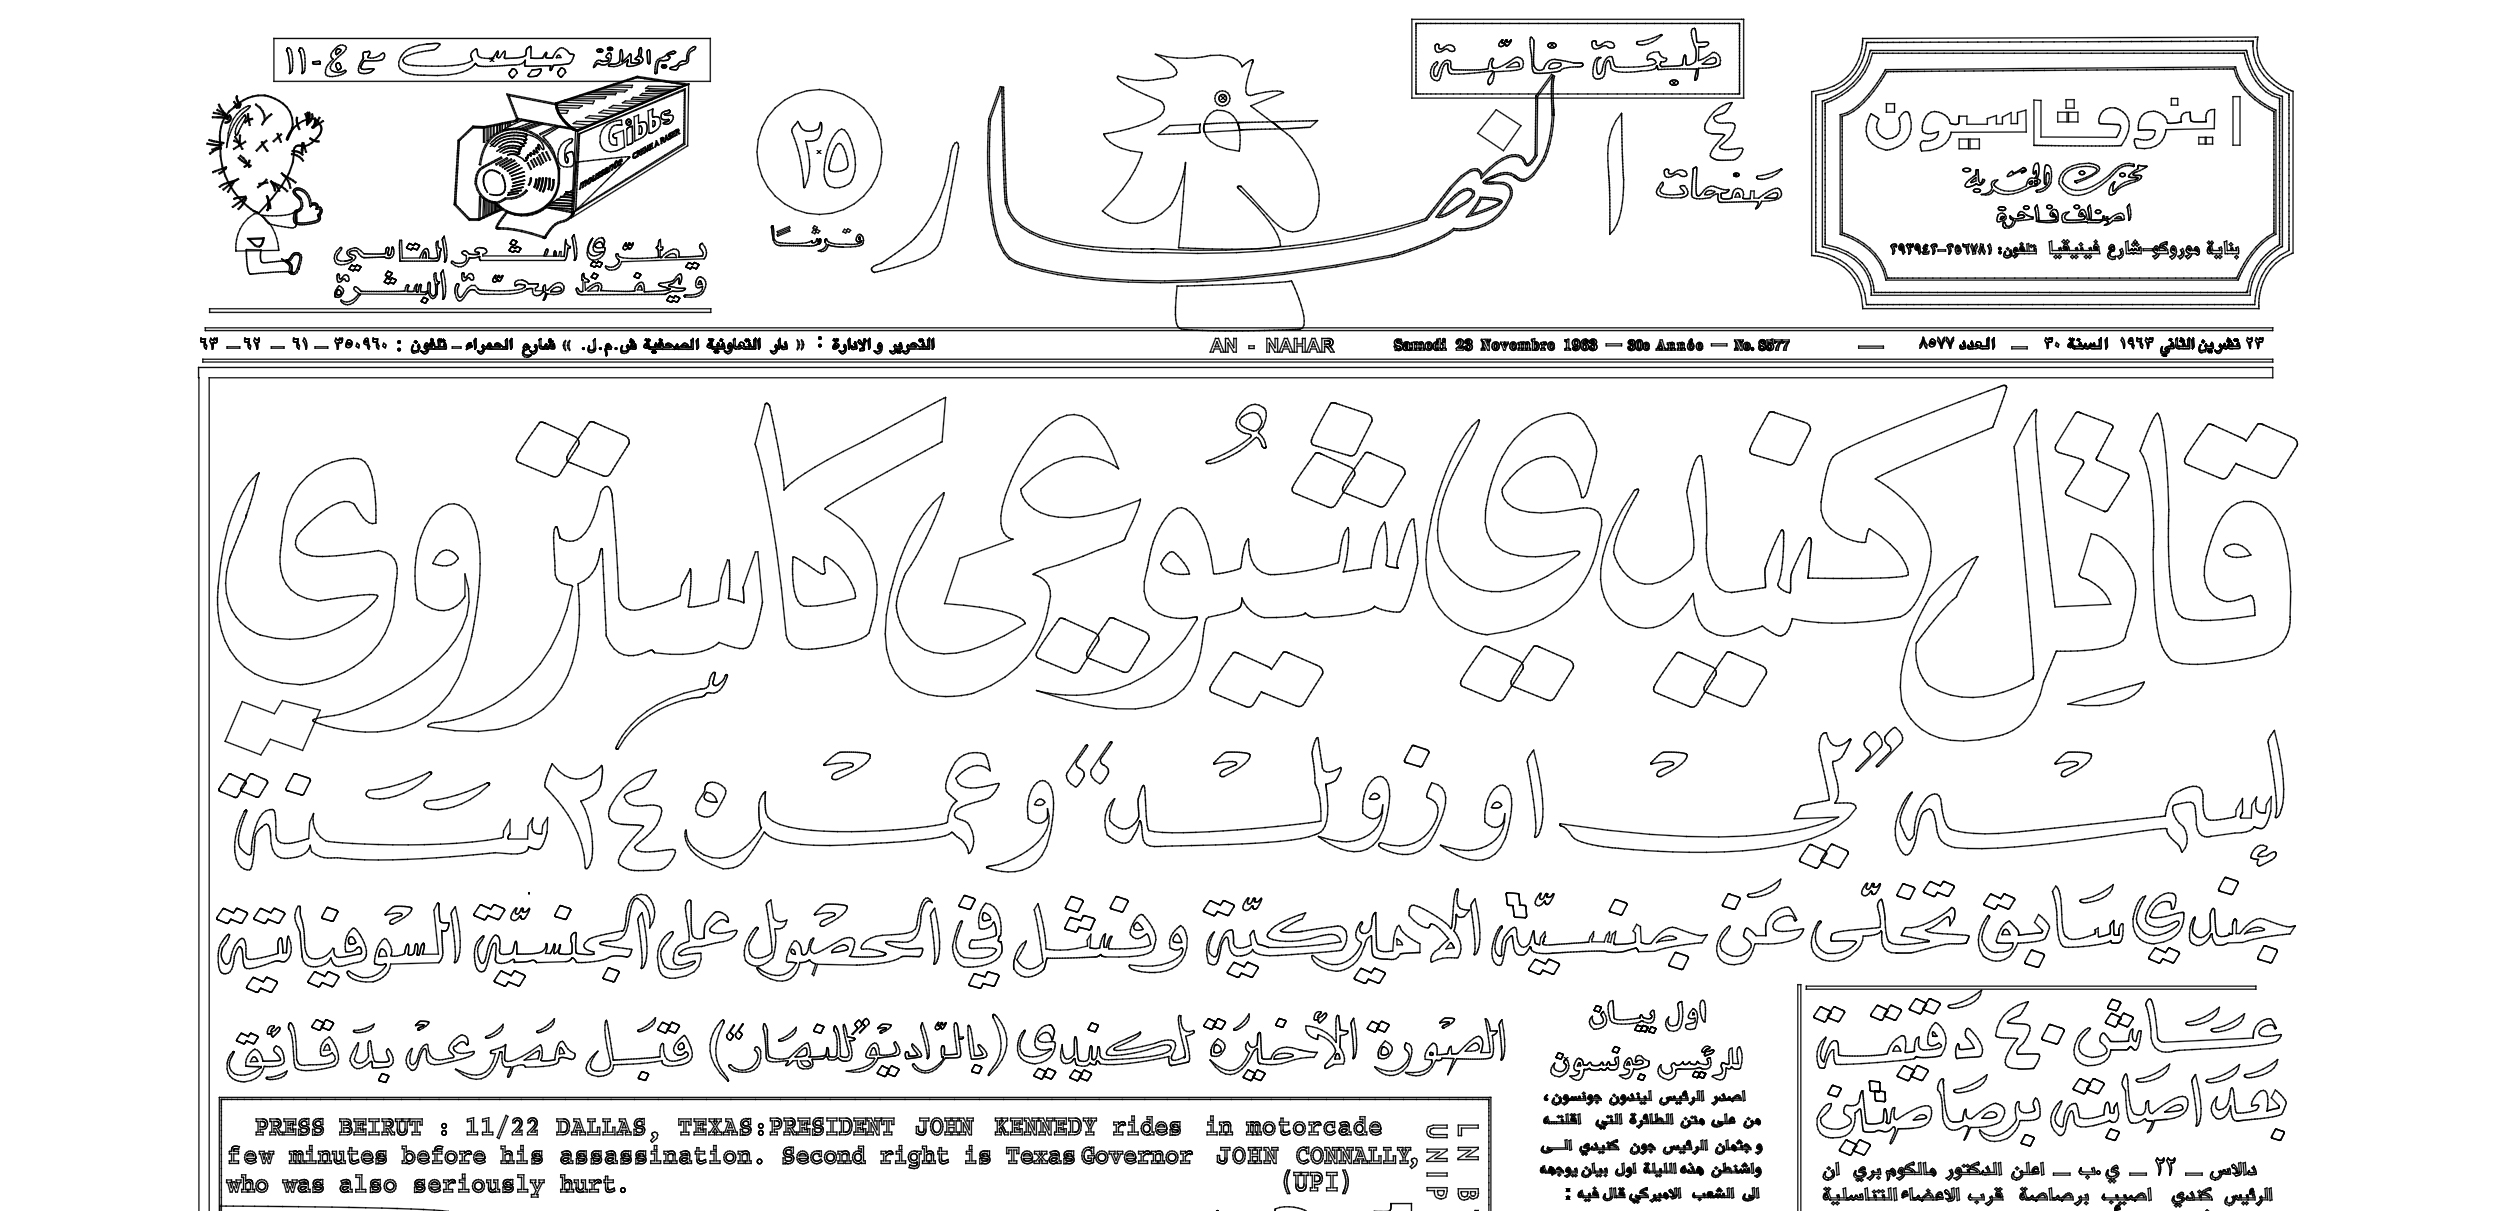 طبعة خاصة
كريم الحلاقة جيبس مع ج-١١
Gibbs
G
mousante
CREME A RASER
يطرّي الشعر القاسي
ويحفظ صحة البشرة
٢٥
قرشًا
النهار
٤
صفحات
اينوفاسيون
اصناف فاخرة
بناية موروكو-شارع فينيقيا تلفون: ٢٥٦٧٨١-٢٩٣٩٤٢
٢٣ تشرين الثاني ١٩٦٣ السنة ٣٠ — العدد ٨٥٧٧ —
Samedi 23 Novembre 1963 — 30e Année — No. 8577
AN - NAHAR
التحرير والادارة : « دار التعاونية الصحفية ش.م.ل. » شارع الحمراء – تلفون : ٣٥٠٩٦٠ – ٦١ – ٦٢ – ٦٣
قاتِل كنيدي شيُوعي كاستروي
إسمه ”لي اوزولد“ وعمره ٢٤ سَنة
جندي سَابق تخلّى عَن جنسيّة الاميركيّة وفشل في الحصول على الجنسيّة السوفياتية
الصورة الأخيرَة لكنيدي (بالرّاديو ”للنهَار“) قبَل مصرَعه بدَقائق
PRESS BEIRUT : 11/22 DALLAS, TEXAS:PRESIDENT JOHN KENNEDY rides in motorcade
few minutes before his assassination. Second right is Texas Governor JOHN CONNALLY,
who was also seriously hurt. (UPI)
اول بيان
للرئيس جونسون
اصدر الرئيس ليندون جونسون،
من على متن الطائرة التي اقلته
وجثمان الرئيس جون كنيدي الى
واشنطن هذه الليلة اول بيان يوجهه
الى الشعب الاميركي قال فيه :
عَاشَ ٤٠ دَقيقة
بَعدَ اصَابته برصَاصتين
دالاس – ٢٢ – ي.ب – اعلن الدكتور مالكوم بري ان
الرئيس كندي اصيب برصاصة قرب الاعضاء التناسلية